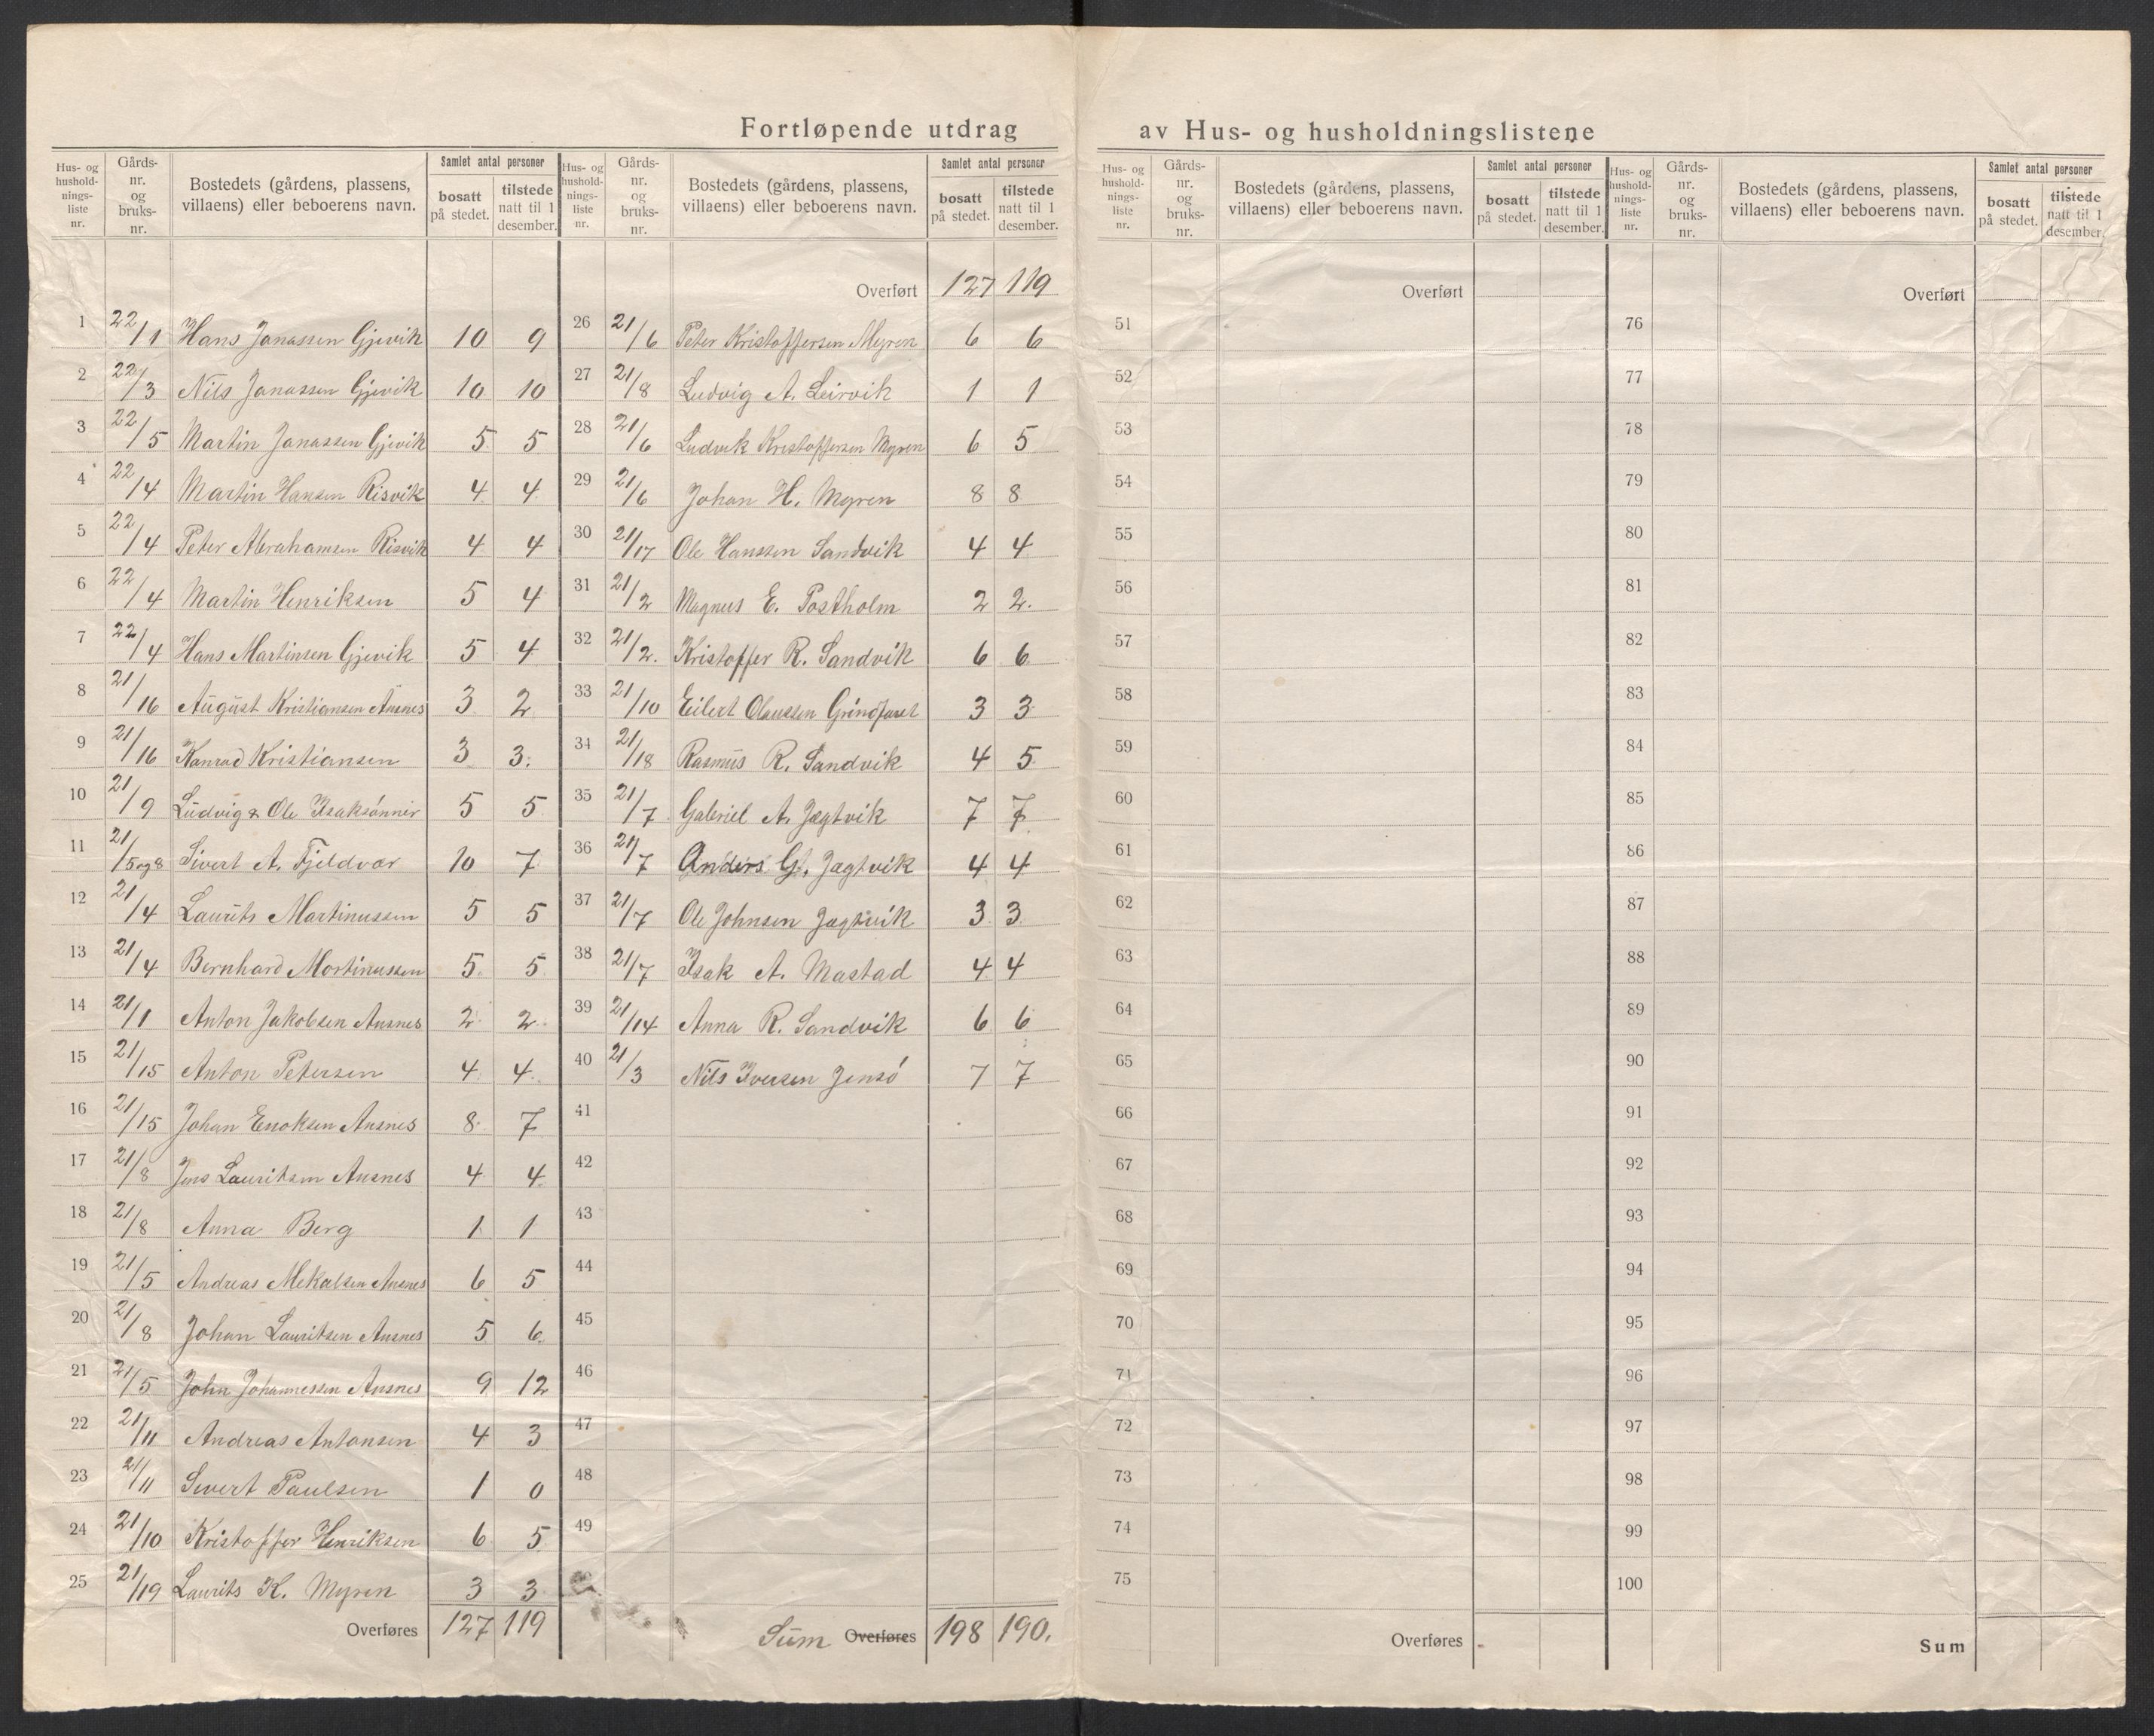 Fortløpende utdrag av Hus- og husholdningslistene
Hus- og husholdnings-liste nr. | Gårds-nr. og bruks-nr. | Bostedets (gårdens, plassens, villaens) eller beboerens navn. | Samlet antal personer | bosatt på stedet. | tilstede natt til 1 desember.
1 22/1 Hans Janassen Gjevik 10 9
2 22/3 Nils Janassen Gjevik 10 10
3 22/5 Martin Janassen Gjevik 5 5
4 22/4 Martin Hansen Risvik 4 4
5 22/4 Peter Abrahamsen Risvik 4 4
6 22/4 Martin Henriksen 5 4
7 22/4 Hans Martinsen Gjevik 5 4
8 21/16 August Kristiansen Ausnes 3 2
9 21/16 Konrad Kristiansen 3 3.
10 21/9 Ludvig & Ole Isaksønner 5 5
11 21/5 og 8 Sivert A. Fjeldvær 10 7
12 21/4 Laurits Martinussen 5 5
13 21/4 Bernhard Mortinussen 5 5
14 21/1 Anton Jakobsen Ausnes 2 2
15 21/15 Anton Petersen 4 4
16 21/15 Johan Enoksen Ausnes 8 7
17 21/8 Jens Lauritsen Ausnes 4 4
18 21/8 Anna Berg 1 1
19 21/5 Andreas Mekalsen Ausnes 6 5
20 21/8 Johan Lauritsen Ausnes 5 6
21 21/5 John Johannessen Ausnes 9 12
22 21/11 Andreas Antonsen 4 3
23 21/11 Sivert Paulsen 1 0
24 21/10 Kristoffer Henriksen 6 5
25 21/19 Laurits K. Myren 3 3
Overføres 127 119
Hus- og husholdnings-liste nr. | Gårds-nr. og bruks-nr. | Bostedets (gårdens, plassens, villaens) eller beboerens navn. | Samlet antal personer | bosatt på stedet. | tilstede natt til 1 desember.
Overført 127 119
26 21/6 Peter Kristoffersen Myren 6 6
27 21/8 Ludvig A. Leirvik 1 1
28 21/6 Ludvik Kristoffersen Myren 6 5
29 21/6 Johan H. Myren 8 8
30 21/17 Ole Hanssen Sandvik 4 4
31 21/2 Magnus E. Postholm 2 2.
32 21/2. Kristoffer R. Sandvik 6 6
33 21/10 Eilert Olaussen Grindfaret 3 3
34 21/18 Rasmus R. Sandvik 4 5
35 21/7 Gabriel A. Jægtvik 7 7
36 21/7 Anders G. Jægtvik 4 4
37 21/7 Ole Johnsen Jægtvik 3 3
38 21/7 Isak A. Mastad 4 4
39 21/14 Anna R. Sandvik 6 6
40 21/3 Nils Iversen Jensø 7 7
41
42
43
44
45
46
47
48
49
Sum Overføres 198 190.
Hus- og hushold-nings-liste nr. | Gårds-nr. og bruks-nr. | Bostedets (gårdens, plassens, villaens) eller beboerens navn. | Samlet antal personer | bosatt på stedet. | tilstede natt til 1 desember.
Overført
51
52
53
54
55
56
57
58
59
60
61
62
63
64
65
66
67
68
69
70
71
72
73
74
75
Overføres
Hus- og hushold-nings-liste nr. | Gårds-nr. og bruks-nr. | Bostedets (gårdens, plassens, villaens) eller beboerens navn. | Samlet antal personer | bosatt på stedet. | tilstede natt til 1 desember.
Overført
76
77
78
79
80
81
82
83
84
85
86
87
88
89
90
91
92
93
94
95
96
97
98
99
100
Sum